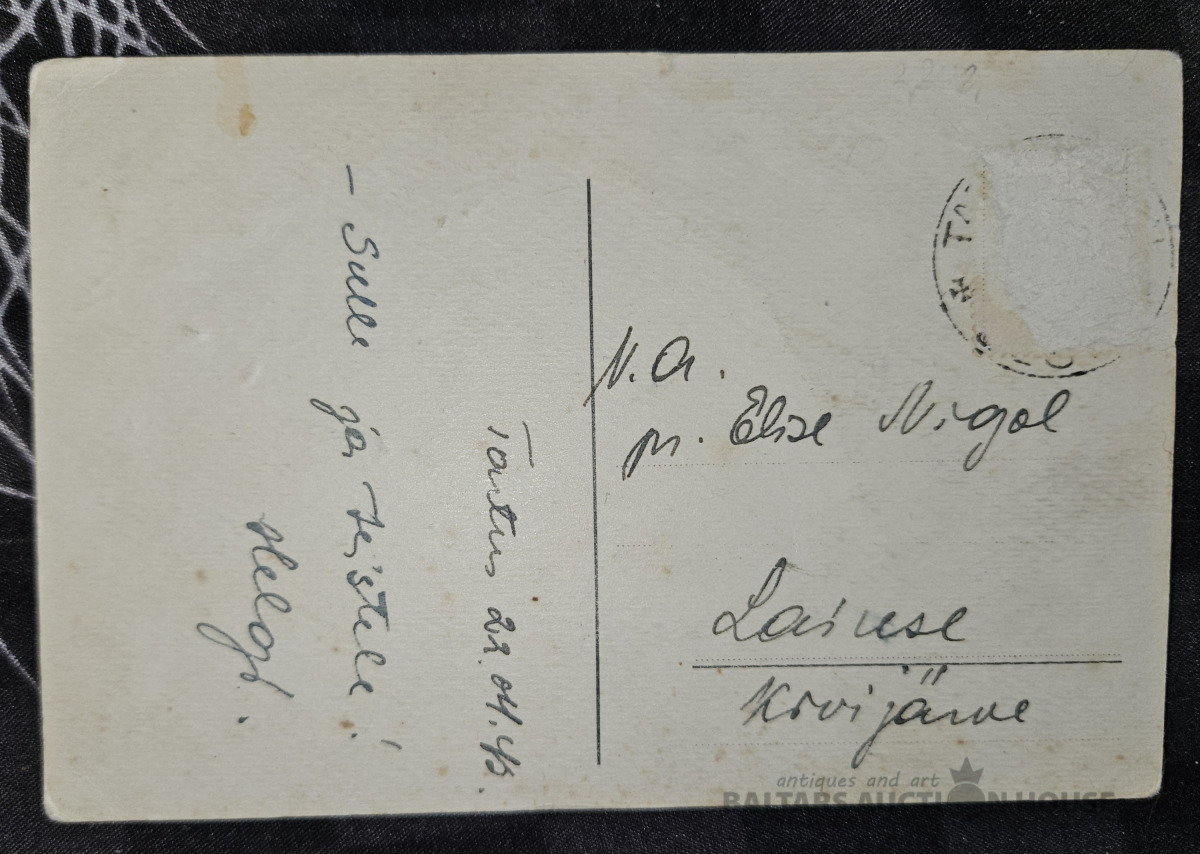 — Sulle
ja teistele!
Helgi.
Tartus 22.04.43.
N.A.
pr. Elise Nigol
Laiuse
Kivijärve
antiques and art
BALTARS AUCTION HOUSE